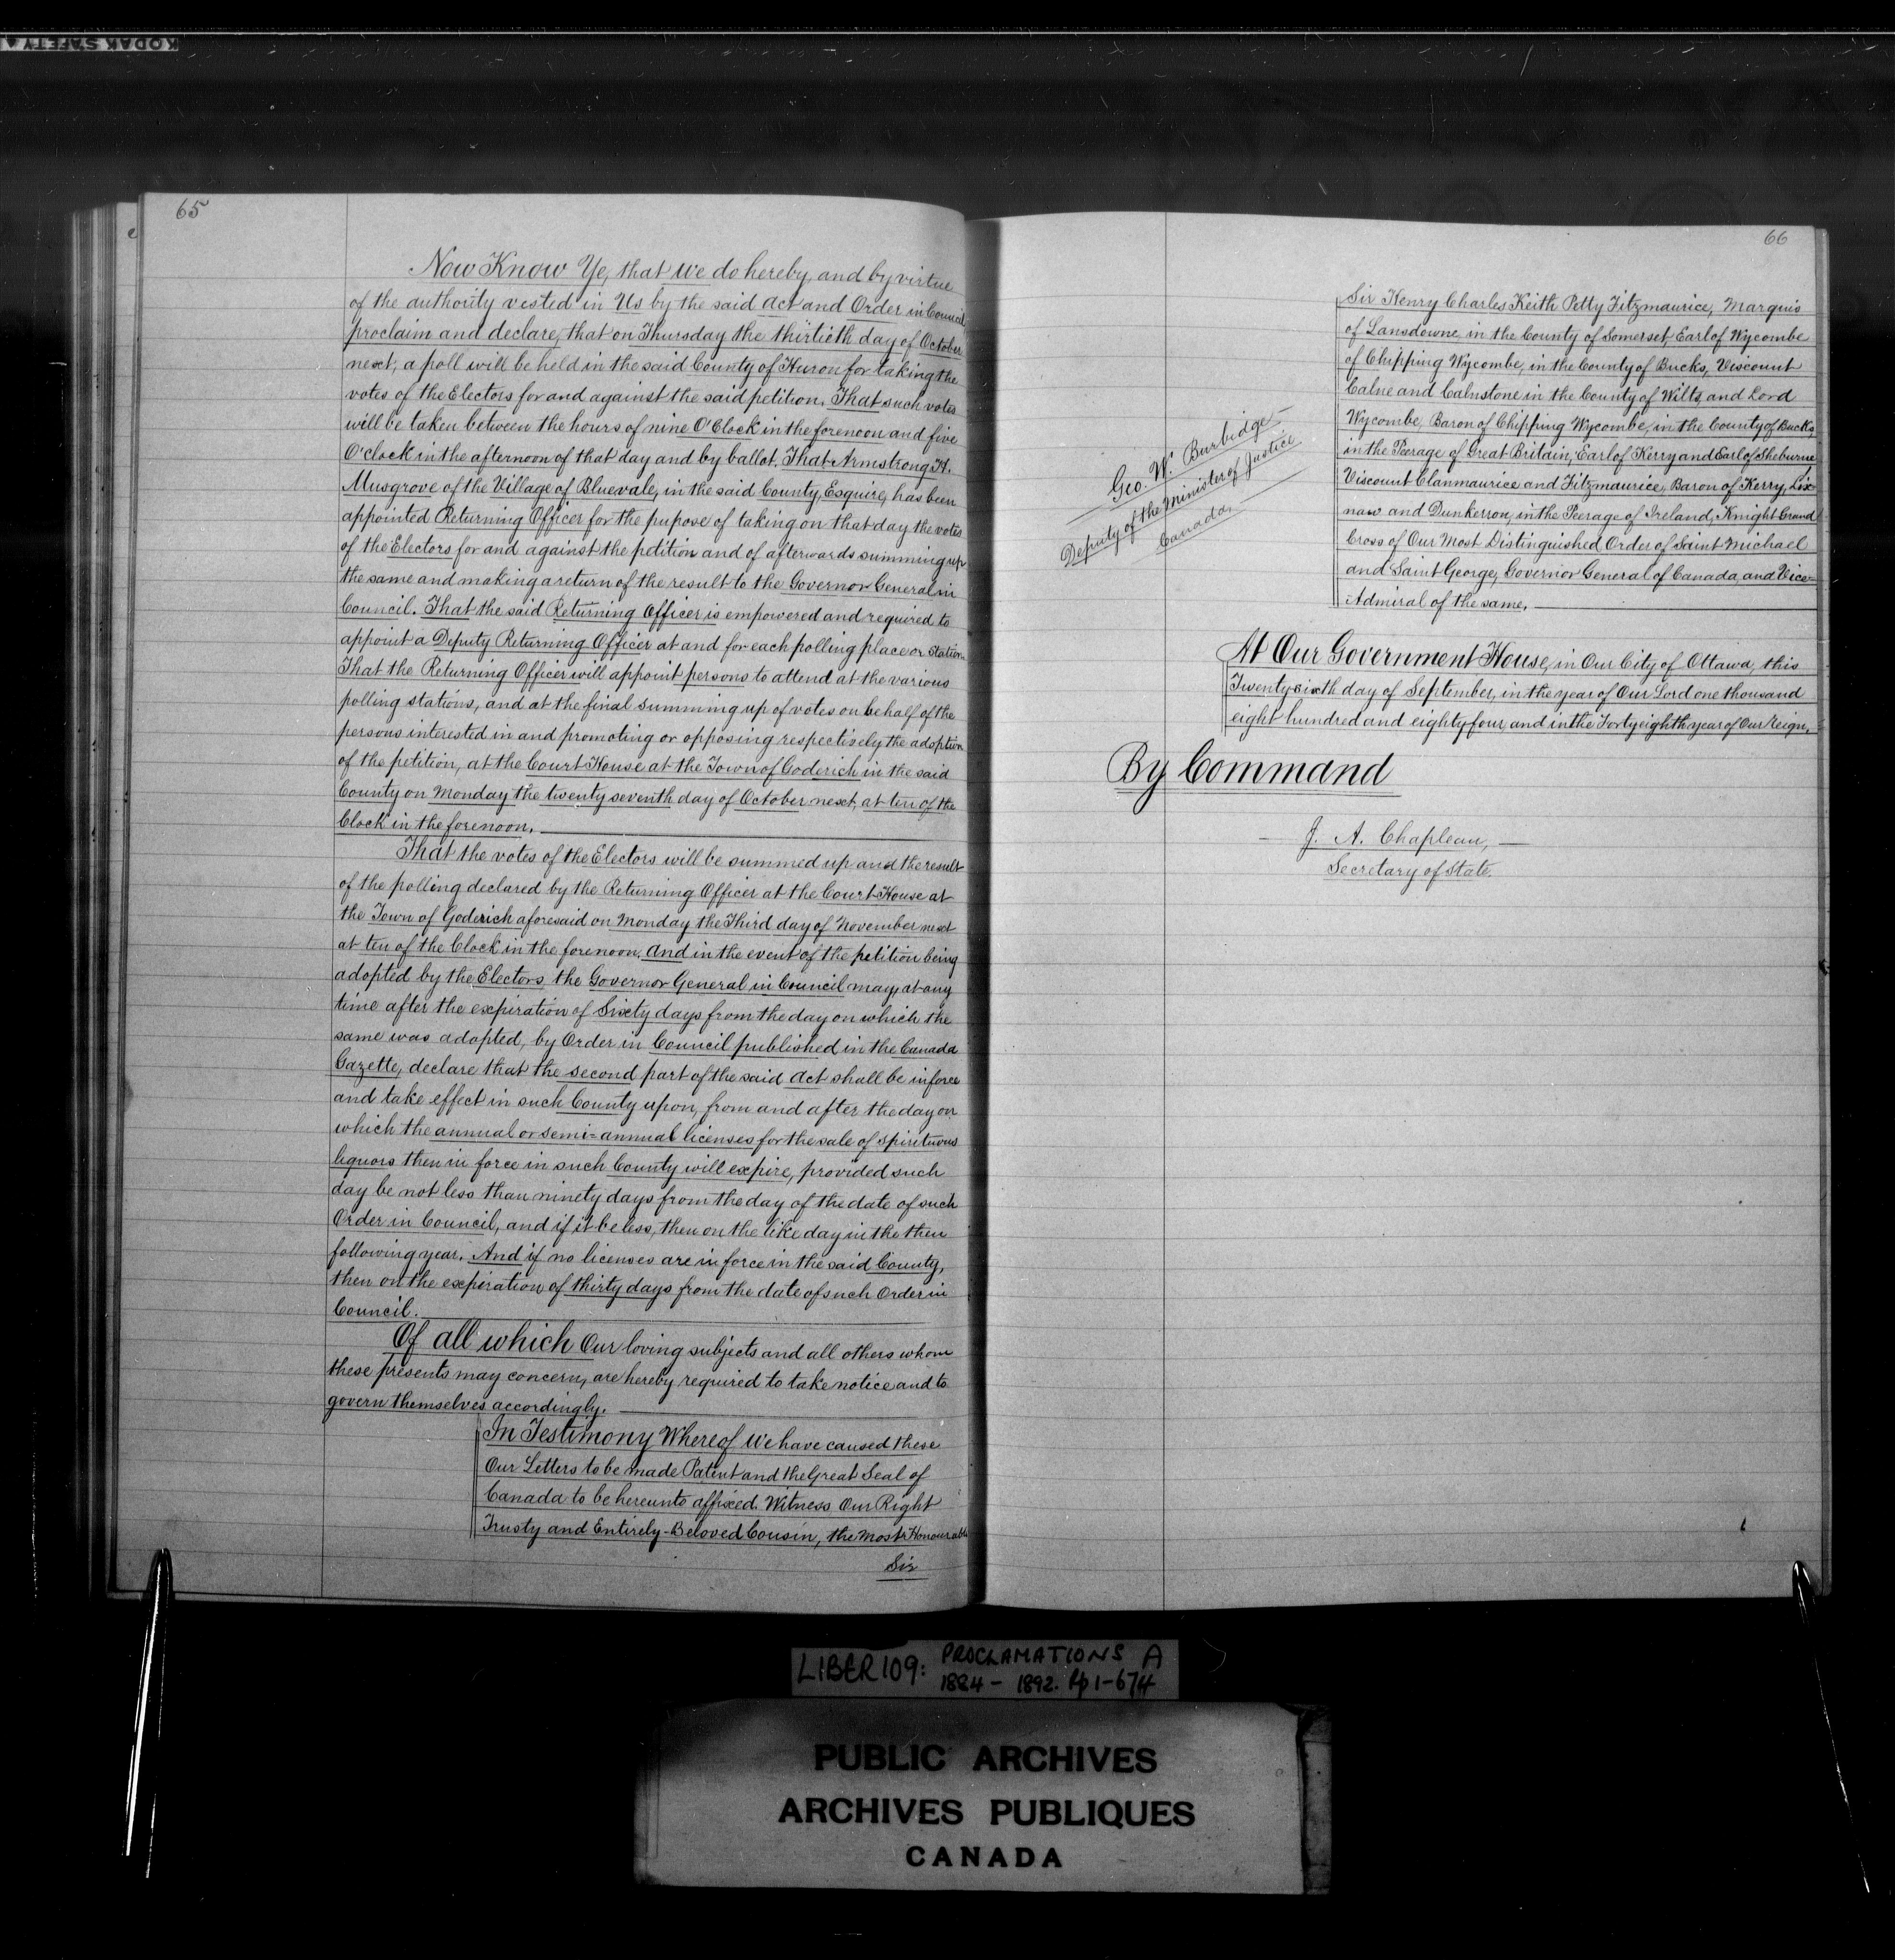 KODAK SAFETY
65
Now Know Ye, that We do hereby, and by virtue
of the authority vested in Us by the said Act and Order in Council,
proclaim and declare, that on Thursday the thirtieth day of October
next, a poll will be held in the said County of Huron for taking the
votes of the Electors for and against the said petition. That such votes
will be taken between the hours of nine O'Clock in the forenoon and five
O'clock in the afternoon of that day and by ballot. That Armstrong H.
Musgrove of the Village of Bluevale, in the said County, Esquire, has been
appointed Returning Officer for the pupose of taking on that day the votes
of the Electors for and against the petition and of afterwards summing up
the same and making a return of the result to the Governor General in
Council. That the said Returning Officer is empowered and required to
appoint a Deputy Returning Officer at and for each polling place or Station.
That the Returning Officer will appoint persons to attend at the various
polling stations, and at the final summing up of votes on behalf of the
persons interested in and promoting or opposing respectively the adoption
of the petition, at the Court House at the Town of Goderich in the said
County on Monday the twenty seventh day of October next, at ten of the
Clock in the forenoon.
That the votes of the Electors will be summed up and the result
of the polling declared by the Returning Officer at the Court House at
the Town of Goderich aforesaid on Monday the Third day of November next
at ten of the Clock in the forenoon. And in the event of the petition being
adopted by the Electors the Governor General in Council may, at any
time after the expiration of Sixty days from the day on which the
same was adopted, by Order in Council published in the Canada
Gazette, declare that the second part of the said Act shall be in force
and take effect in such County upon, from and after the day on
which the annual or semi=annual licenses for the sale of spirituous
liquors then in force in such County will expire, provided such
day be not less than ninety days from the day of the date of such
Order in Council, and if it be less, then on the like day in the then
following year. And if no licenses are in force in the said County,
then on the expiration of thirty days from the date of such Order in
Council.
Of all which Our loving subjects and all others whom
these presents may concern, are hereby required to take notice and to
govern themselves accordingly.
In Testimony Whereof We have caused these
Our Letters to be made Patent and the Great Seal of
Canada to be hereunto affixed. Witness Our Right
Trusty and Entirely-Beloved Cousin, the Most Honourable
Sir
66
Sir Henry Charles Keith Petty Fitzmaurice, Marquis
of Lansdowne, in the County of Somerset, Earl of Wycombe
of Chipping Wycombe, in the County of Bucks, Viscount
Calne and Calnstone in the County of Wilts, and Lord
Wycombe, Baron of Chipping Wycombe, in the County of Bucks,
in the Peerage of Great Britain, Earl of Kerry and Earl of Sheburne
Viscount Clanmaurice and Fitzmaurice, Baron of Kerry, Lix-
naw and Dunkerron, in the Peerage of Ireland, Knight Grand
Cross of Our Most Distinguished Order of Saint Michael
and Saint George, Governor General of Canada, and Vice=
Admiral of the same.
Geo. W. Burbidge
Deputy of the Minister of Justice
Canada,
At Our Government House, in Our City of Ottawa, this
Twenty sixth day of September, in the year of Our Lord one thousand
eight hundred and eighty four, and in the Forty eighth year of Our Reign.
By Command
J. A. Chapleau,
Secretary of State.
LIBER 109: PROCLAMATIONS A
1884 - 1892. Pp 1-674
PUBLIC ARCHIVES
ARCHIVES PUBLIQUES
CANADA